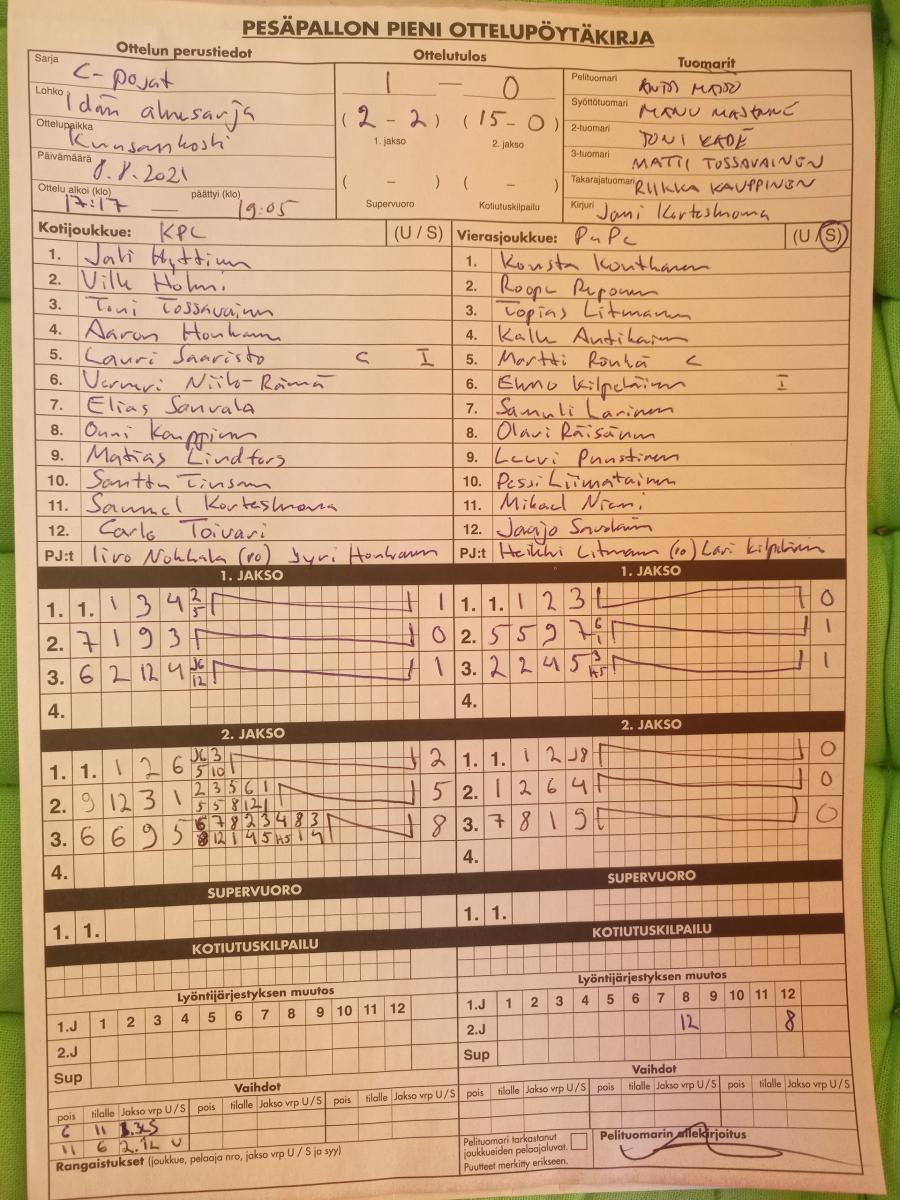 PESÄPALLON PIENI OTTELUPÖYTÄKIRJA
Ottelun perustiedot Ottelutulos Tuomarit
Sarja C-pojat
Lohko Idän aluesarja
Ottelupaikka Kuusankoski
Päivämäärä 8.8.2021
Ottelu alkoi (klo) 17:17 — päättyi (klo) 19:05
1 — 0
(2 - 2) (15 - 0)
1. jakso 2. jakso
( - ) ( - )
Supervuoro Kotiutuskilpailu
Pelituomari
Syöttötuomari MANU
2-tuomari TONI
3-tuomari MATTI TOSSAVAINEN
Takarajatuomari RIIKKA KAUPPINEN
Kirjuri Jani Kortesmaa
Kotijoukkue: KPL (U / S)
1. Jali Hyttinen
2. Ville Holmi
3. Toni Tossavainen
4. Aaron Honkanen
5. Lauri Saaristo C I
6. Verneri Niilo-Rämä
7. Elias Sauvala
8. Onni Kauppinen
9. Matias Lindfors
10. Santtu Tiusanen
11. Samuel Kortesmaa
12. Carlo Toivari
PJ:t Iiro Nokkala (vo) Jyri Honkanen
Vierasjoukkue: PuPe (U / S)
1. Konsta Kouthanen
2. Roope Reponen
3. Topias Litmanen
4. Kalle Antikainen
5. Martti Rönkä C
6. Elmo Kilpeläinen I
7. Samuli Larinen
8. Olavi Räisänen
9. Leevi Puustinen
10. Pessi Liimatainen
11. Mikael Niemi
12. Jaajo
PJ:t Heikki Litmanen (vo) Lari Kilpeläinen
1. JAKSO
1. 1. 1 3 4 2 5 1
2. 7 1 9 3 0
3. 6 2 12 4 J6 12 1
4.
1. JAKSO
1. 1. 1 2 3 0
2. 5 5 9 7 6 1 1
3. 2 2 4 5 3 H5 1
4.
2. JAKSO
1. 1. 1 2 6 J6 3 5 10 2
2. 9 12 3 1 2 3 5 6 1 5 5 8 12 1 5
3. 6 6 9 5 6 7 8 2 3 4 8 3 8 12 1 4 5 H5 1 4 8
4.
2. JAKSO
1. 1. 1 2 J8 0
2. 1 2 6 4 0
3. 7 8 1 9 0
4.
SUPERVUORO
1. 1.
SUPERVUORO
1. 1.
KOTIUTUSKILPAILU
KOTIUTUSKILPAILU
Lyöntijärjestyksen muutos
1.J 1 2 3 4 5 6 7 8 9 10 11 12
2.J
Sup
Lyöntijärjestyksen muutos
1.J 1 2 3 4 5 6 7 8 9 10 11 12
2.J 12 8
Sup
Vaihdot
pois tilalle Jakso vrp U/S pois tilalle Jakso vrp U/S pois tilalle Jakso vrp U/S
6 11 1.3LS
11 6 2.1L U
Rangaistukset (joukkue, pelaaja nro, jakso vrp U / S ja syy)
Vaihdot
pois tilalle Jakso vrp U/S pois tilalle Jakso vrp U/S pois tilalle Jakso vrp U/S
Pelituomari tarkastanut
joukkueiden pelaajaluvat.
Puutteet merkitty erikseen.
Pelituomarin allekirjoitus